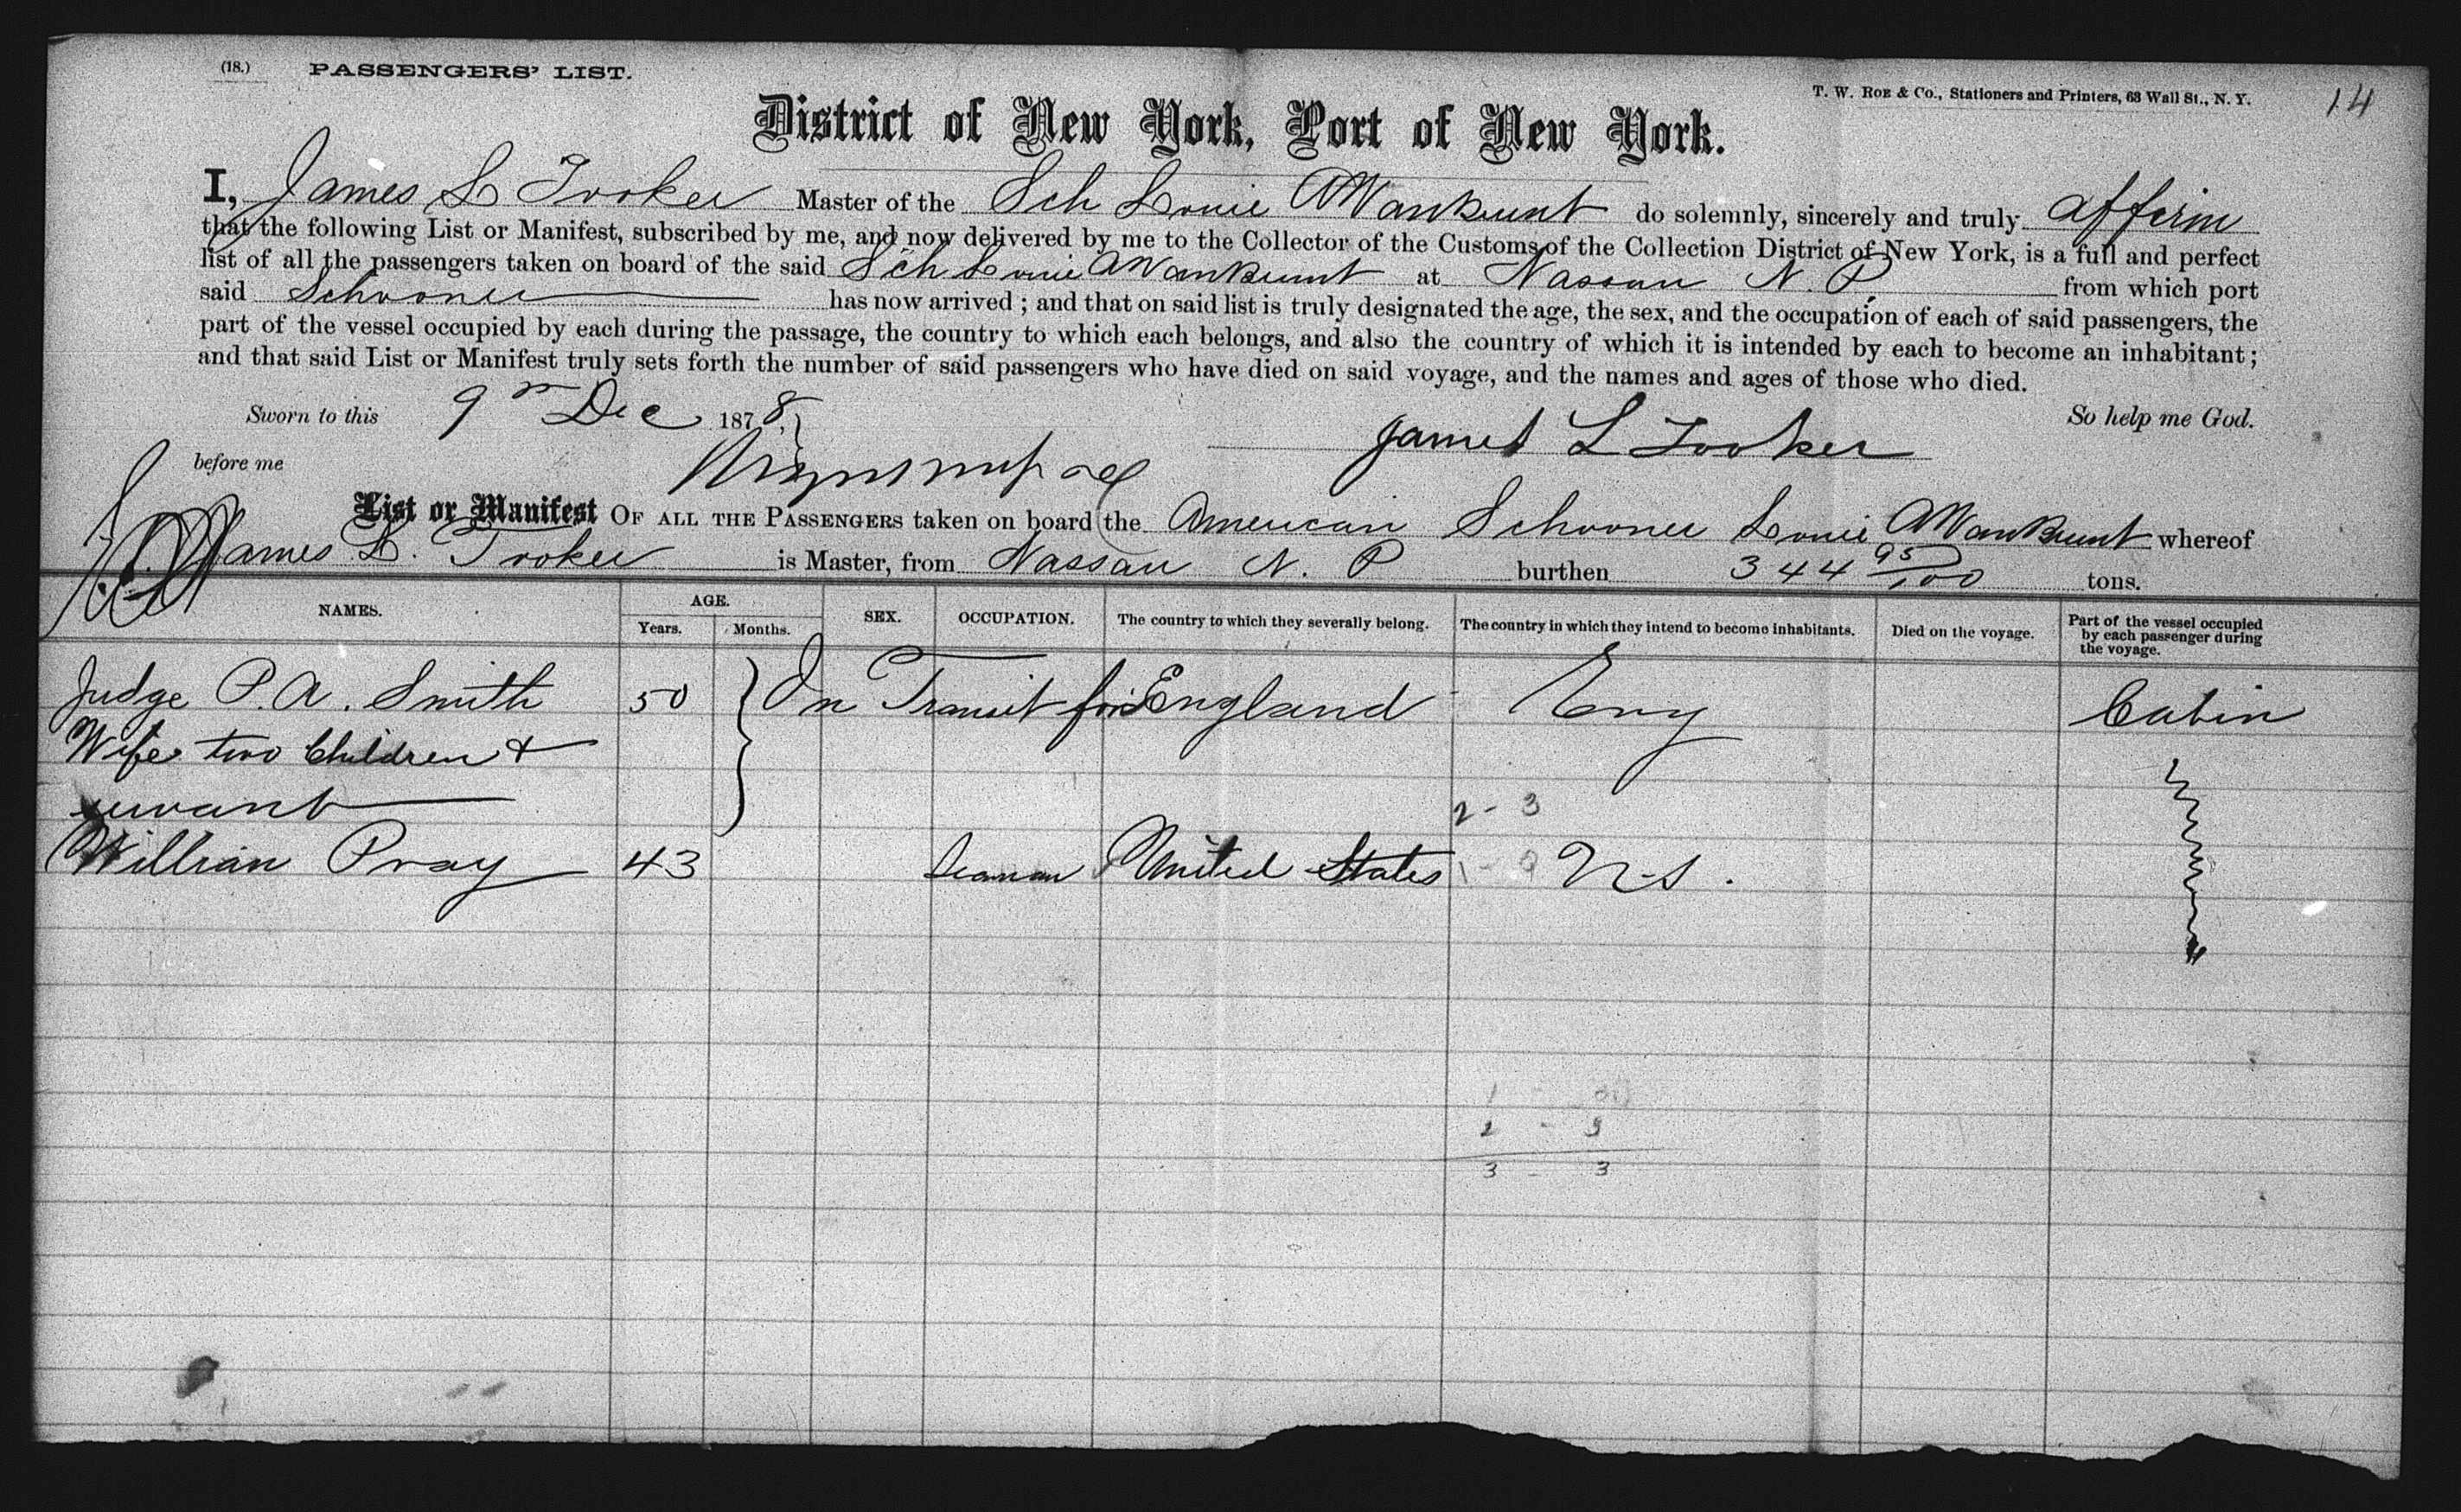 (18.) PASSENGERS' LIST.
T. W. ROE & Co., Stationers and Printers, 63 Wall St., N. Y. 14
District of New York, Port of New York.
I, James L Tooker Master of the Sch Louie A Van Brunt do solemnly, sincerely and truly affirm
that the following List or Manifest, subscribed by me, and now delivered by me to the Collector of the Customs of the Collection District of New York, is a full and perfect
list of all the passengers taken on board of the said Sch Louie A Van Brunt at Nassau N. P. from which port
said Schooner has now arrived; and that on said list is truly designated the age, the sex, and the occupation of each of said passengers, the
part of the vessel occupied by each during the passage, the country to which each belongs, and also the country of which it is intended by each to become an inhabitant;
and that said List or Manifest truly sets forth the number of said passengers who have died on said voyage, and the names and ages of those who died.
Sworn to this 9th Dec 1878, So help me God.
before me James L Tooker
List or Manifest OF ALL THE PASSENGERS taken on board the American Schooner Louie A Van Brunt whereof
James L. Tooker is Master, from Nassau N. P burthen 344 95/100 tons.
NAMES. AGE. Years. Months. SEX. OCCUPATION. The country to which they severally belong. The country in which they intend to become inhabitants. Died on the voyage. Part of the vessel occupied by each passenger during the voyage.
Judge P. A. Smith 50 In Transit for England Eng Cabin
Wife two Children +
servant 2 - 3
William Pray 43 Seaman United States 1 - 0 U.S.
1 - 0
2 - 3
3 - 3